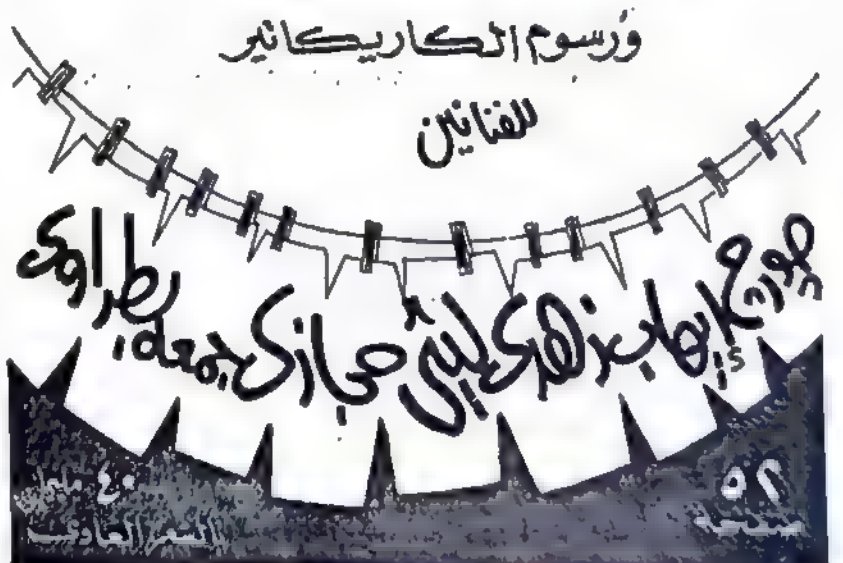 ورسوم الكاريكاتير
للفنانين
چورچ إيهاب زهدى ليثى حجازى جمعه بطراوى
٥٢ صفحة
٤٠ مليما
السعر العادى